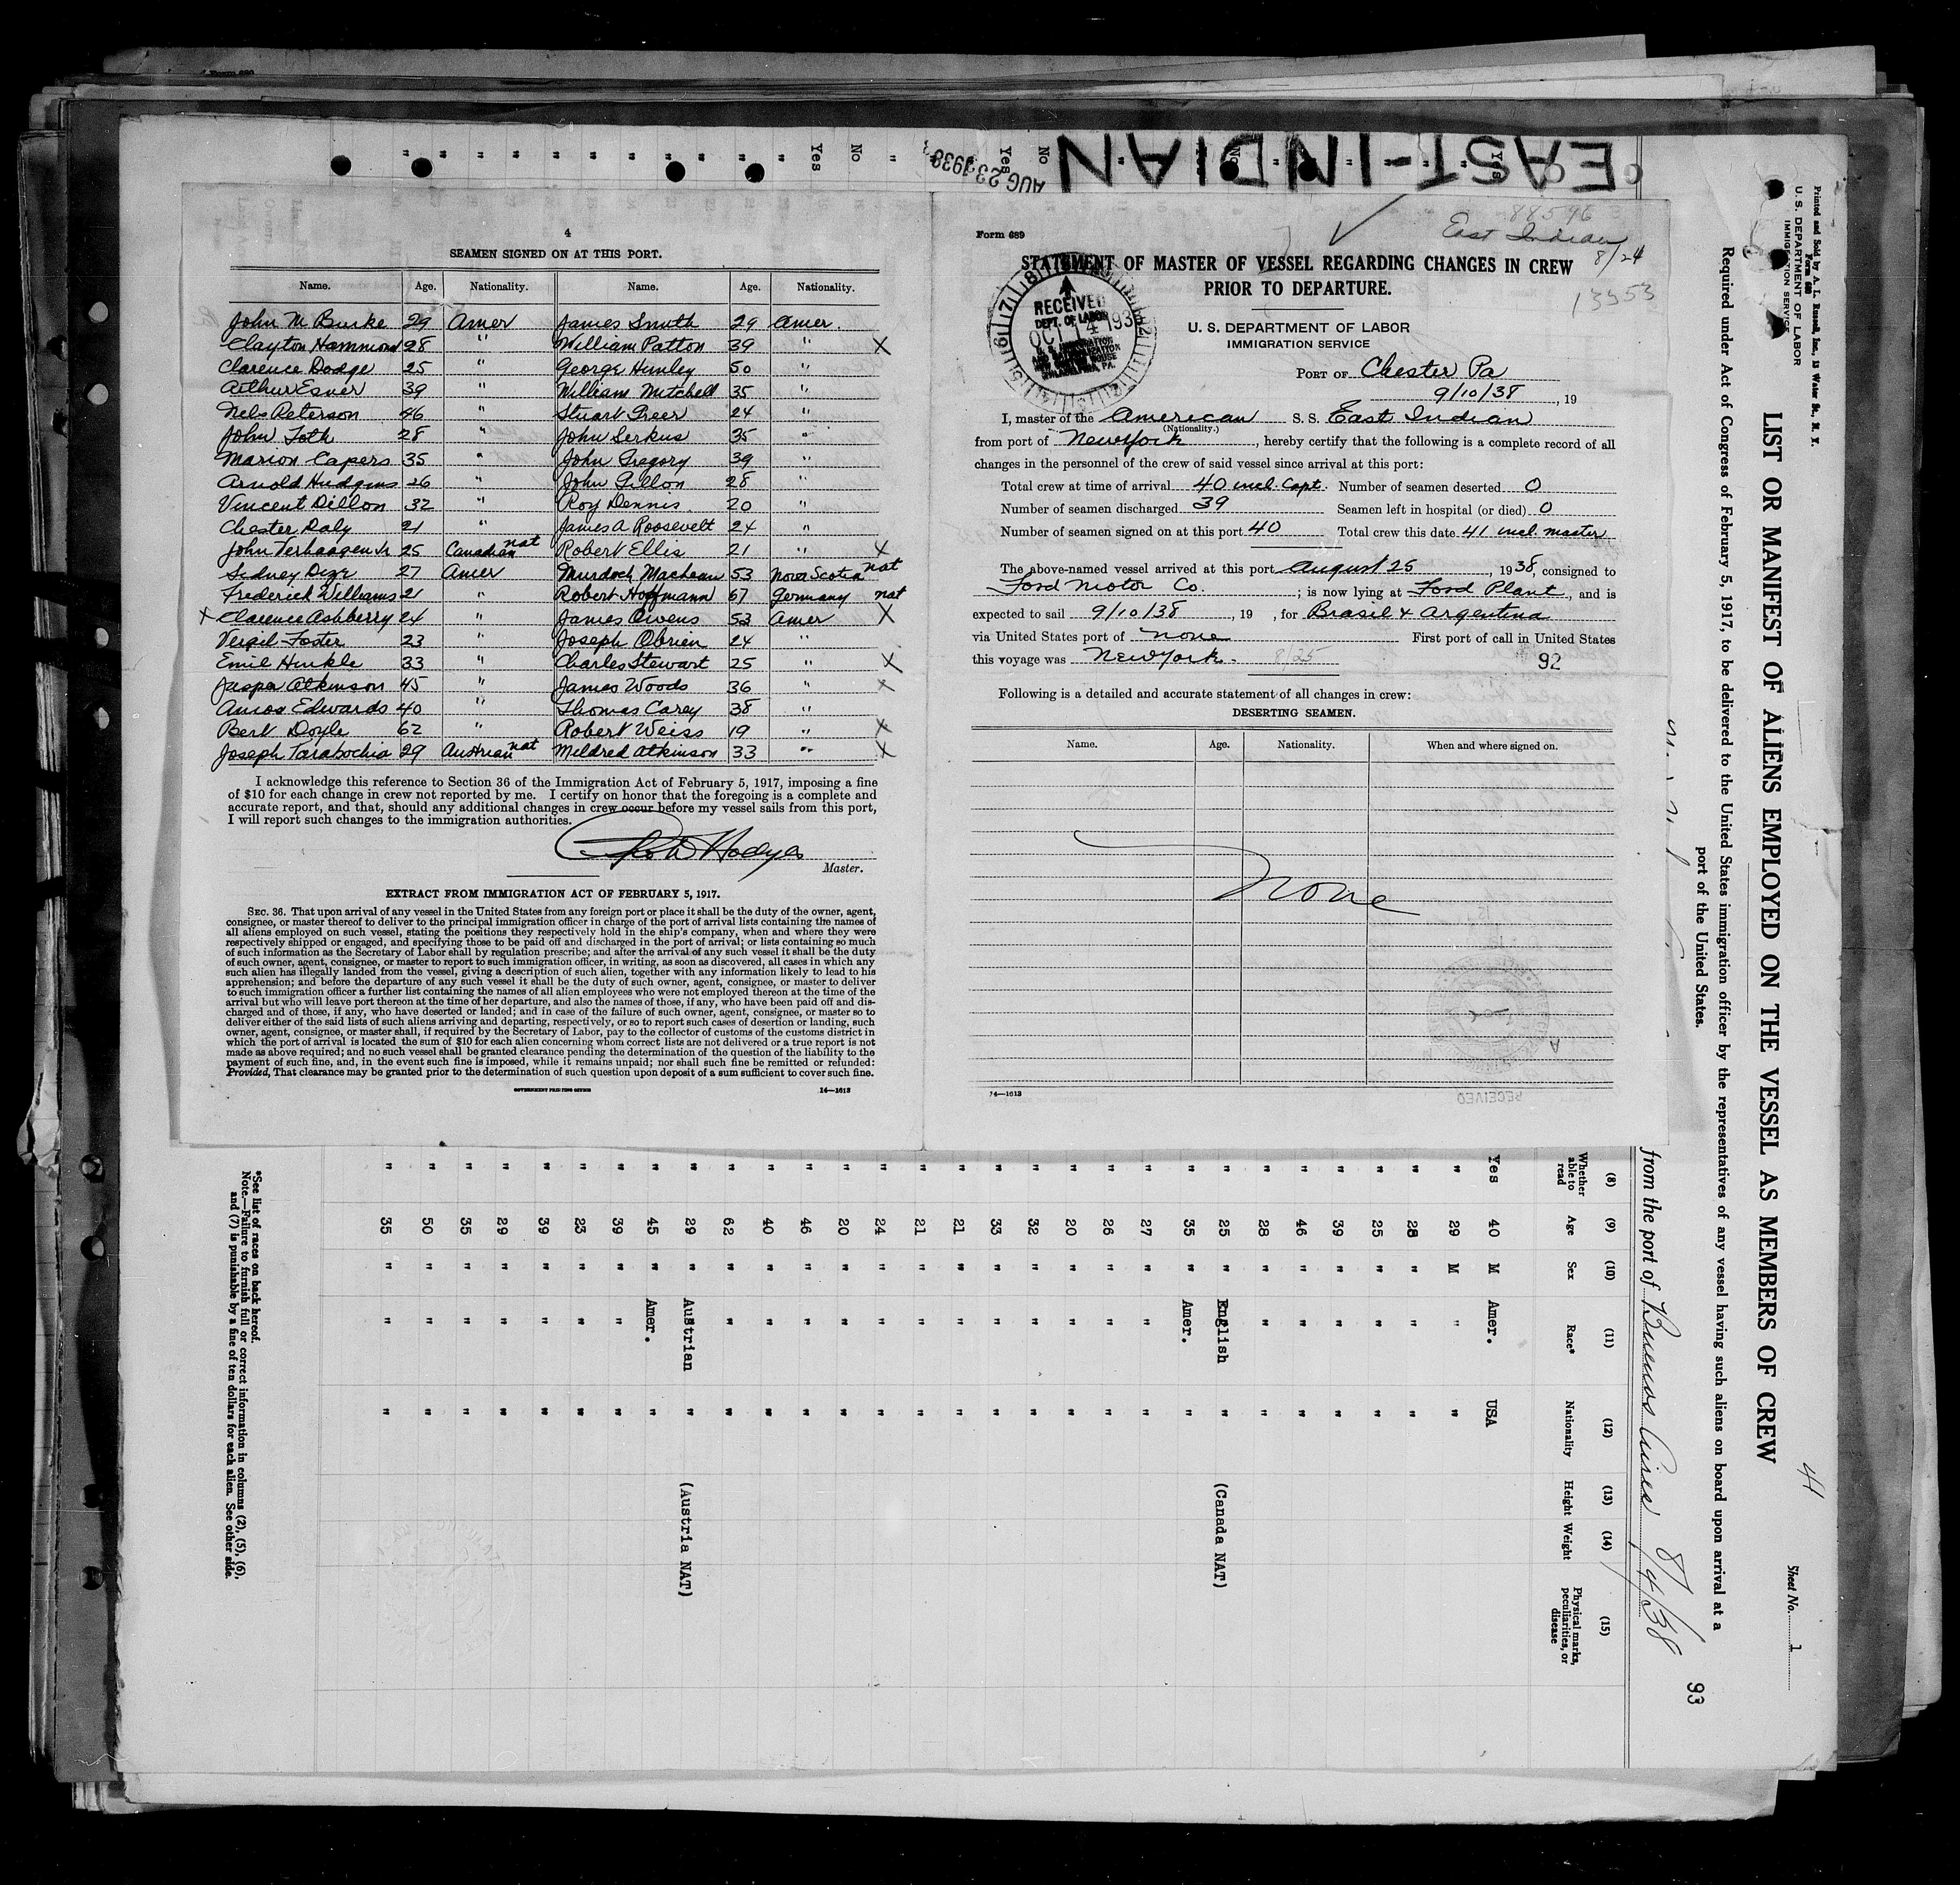 EAST-INDIAN
AUG 23 1938
4
SEAMEN SIGNED ON AT THIS PORT.
Name. Age. Nationality. Name. Age. Nationality.
John M Burke 29 Amer James Smith 29 Amer.
Clayton Hammond 28 " William Patton 39 " X
Clarence Dodge 25 " George Hunley 50 "
Arthur Esner 39 " William Mitchell 35 "
Nels Peterson 46 " Stuart Greer 24 "
John Toth 28 " John Serkus 35 "
Marion Capers 35 " John Gregory 39 "
Arnold Hudgins 26 " John Gillon 28 "
Vincent Dillon 32 " Roy Dennis 20 "
Chester Daly 21 " James A Roosevelt 24 "
John Verhaagen Jr 25 Canadian nat Robert Ellis 21 " X
Sidney Dize 27 Amer Murdoch Maclean 53 Nova Scotia nat
Frederick Williams 21 " Robert Hoffmann 67 Germany nat
X Clarence Ashberry 24 " James Owens 53 Amer X
Virgil Foster 23 " Joseph Obrien 24 "
Emil Hinkle 33 " Charles Stewart 25 " X
Jasper Atkinson 45 " James Woods 36 " X
Amos Edwards 40 " Thomas Carey 38 "
Bert Doyle 62 " Robert Weiss 19 " X
Joseph Tarabochia 29 Austrian nat Mildred Atkinson 33 " X
I acknowledge this reference to Section 36 of the Immigration Act of February 5, 1917, imposing a fine
of $10 for each change in crew not reported by me. I certify on honor that the foregoing is a complete and
accurate report, and that, should any additional changes in crew occur before my vessel sails from this port,
I will report such changes to the immigration authorities.
Hodges
Master.
EXTRACT FROM IMMIGRATION ACT OF FEBRUARY 5, 1917.
SEC. 36. That upon arrival of any vessel in the United States from any foreign port or place it shall be the duty of the owner, agent,
consignee, or master thereof to deliver to the principal immigration officer in charge of the port of arrival lists containing the names of
all aliens employed on such vessel, stating the positions they respectively hold in the ship's company, when and where they were
respectively shipped or engaged, and specifying those to be paid off and discharged in the port of arrival; or lists containing so much
of such information as the Secretary of Labor shall by regulation prescribe; and after the arrival of any such vessel it shall be the duty
of such owner, agent, consignee, or master to report to such immigration officer, in writing, as soon as discovered, all cases in which any
such alien has illegally landed from the vessel, giving a description of such alien, together with any information likely to lead to his
apprehension; and before the departure of any such vessel it shall be the duty of such owner, agent, consignee, or master to deliver
to such immigration officer a further list containing the names of all alien employees who were not employed thereon at the time of the
arrival but who will leave port thereon at the time of her departure, and also the names of those, if any, who have been paid off and dis-
charged and of those, if any, who have deserted or landed; and in case of the failure of such owner, agent, consignee, or master so to
deliver either of the said lists of such aliens arriving and departing, respectively, or so to report such cases of desertion or landing, such
owner, agent, consignee, or master shall, if required by the Secretary of Labor, pay to the collector of customs of the customs district in
which the port of arrival is located the sum of $10 for each alien concerning whom correct lists are not delivered or a true report is not
made as above required; and no such vessel shall be granted clearance pending the determination of the question of the liability to the
payment of such fine, and, in the event such fine is imposed, while it remains unpaid; nor shall such fine be remitted or refunded:
Provided, That clearance may be granted prior to the determination of such question upon deposit of a sum sufficient to cover such fine.
GOVERNMENT PRINTING OFFICE 14—1613
88596
Form 689
East Indian
8/24
13553
STATEMENT OF MASTER OF VESSEL REGARDING CHANGES IN CREW
PRIOR TO DEPARTURE.
RECEIVED
DEPT. OF LABOR
OCT 4 193
U. S. DEPARTMENT OF LABOR
IMMIGRATION SERVICE
PORT OF Chester Pa
9/10/38, 19
I, master of the American S. S. East Indian
(Nationality.)
from port of New York, hereby certify that the following is a complete record of all
changes in the personnel of the crew of said vessel since arrival at this port:
Total crew at time of arrival 40 incl. Capt. Number of seamen deserted 0
Number of seamen discharged 39 Seamen left in hospital (or died) 0
Number of seamen signed on at this port 40 Total crew this date 41 incl. master
The above-named vessel arrived at this port August 25, 1938, consigned to
Ford Motor Co.; is now lying at Ford Plant, and is
expected to sail 9/10/38, 19, for Brasil & Argentina
via United States port of none First port of call in United States
this voyage was New York. 8/25 92
Following is a detailed and accurate statement of all changes in crew:
DESERTING SEAMEN.
Name. Age. Nationality. When and where signed on.
None
14—1613
RECEIVED
Printed and Sold by A. L. Russell, Inc., 13 Water St., N. Y.
Form 680
U. S. DEPARTMENT OF LABOR
IMMIGRATION SERVICE
41
Sheet No. 1
LIST OR MANIFEST OF ALIENS EMPLOYED ON THE VESSEL AS MEMBERS OF CREW
Required under Act of Congress of February 5, 1917, to be delivered to the United States immigration officer by the representatives of any vessel having such aliens on board upon arrival at a
port of the United States.
93
from the port of Buenos Aires 8/4/38
(8) (9) (10) (11) (12) (13) (14) (15)
Whether able to read Age Sex Race* Nationality Height Weight Physical marks, peculiarities, or disease
Yes 40 M Amer. USA
" 29 M " "
" 28 " " "
" 25 " " "
" 39 " " "
" 46 " " "
" 28 " " "
" 25 " English " (Canada NAT)
" 35 " Amer. "
" 27 " " "
" 26 " " "
" 20 " " "
" 32 " " "
" 33 " " "
" 21 " " "
" 21 " " "
" 24 " " "
" 20 " " "
" 46 " " "
" 40 " " "
" 62 " " "
" 29 " Austrian " (Austria NAT)
" 45 " Amer. "
" 39 " " "
" 23 " " "
" 39 " " "
" 29 " " "
" 35 " " "
" 50 " " "
" 35 " " "
*See list of races on back hereof.
Note.—Failure to furnish full or correct information in columns (2), (5), (6),
and (7) is punishable by a fine of ten dollars for each alien. See other side.